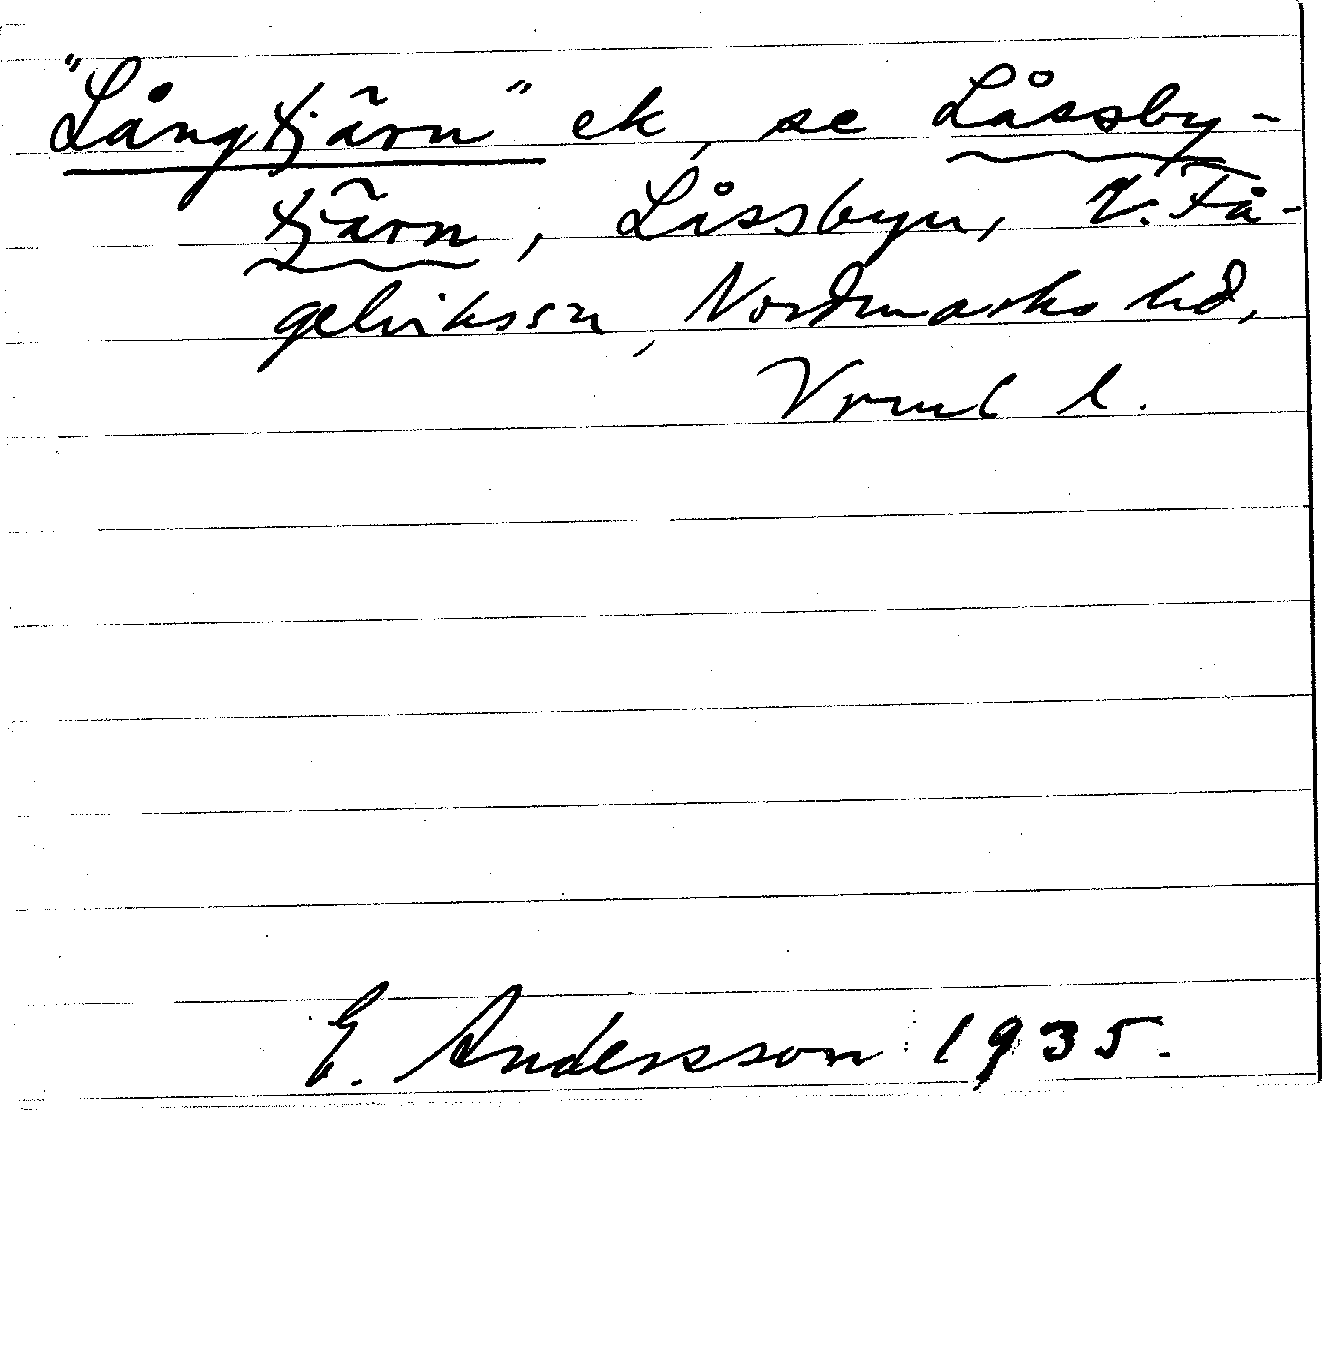 "Långtjärn" ek, se Låssby-
tjärn, Låssbyn, V. Få-
gelvikssn, Nordmarks hd,
Vrml l.
E. Andersson 1935.